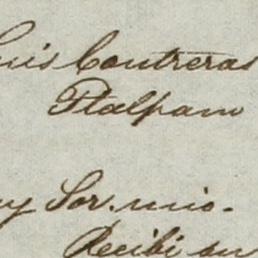 Luis Contreras
Tlalpam
uy Sor. mio.
Recibi su